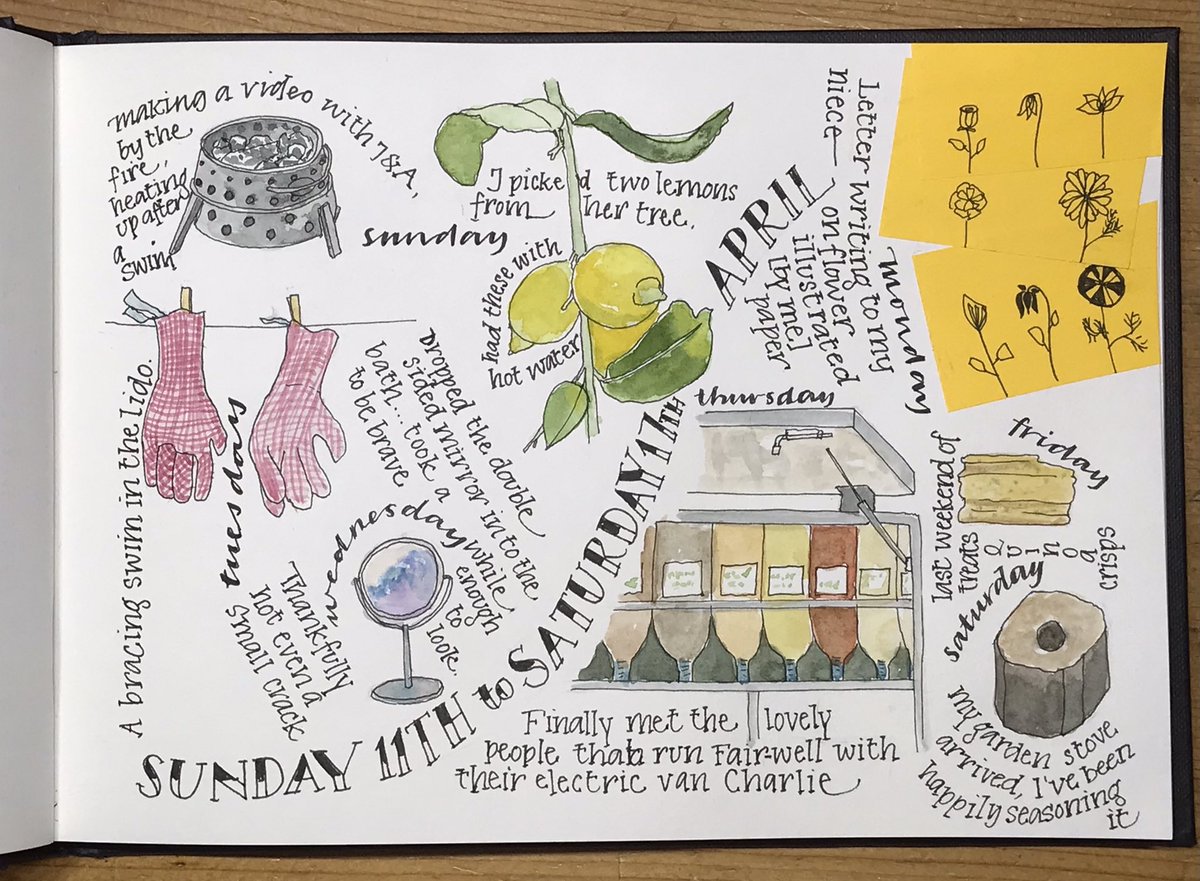 making a video with J&A,
by the
fire..
heating
up after
a
swim
sunday
I picked two lemons
from her tree.
had these with
hot water
APRIL
Letter writing to my
niece — on flower
illustrated
[by me]
paper
monday
A bracing swim in the lido.
tuesday
Dropped the double
sided mirror in to the
bath... took a while
to be brave enough
to
look.
wednesday
Thankfully
not even a
small crack
SUNDAY 11TH to SATURDAY 17TH
thursday
Finally met the lovely
people that run Fair-well with
their electric van Charlie
friday
last weekend of
treats
Quinoa
crisps
saturday
my garden stove
arrived, I've been
happily seasoning
it